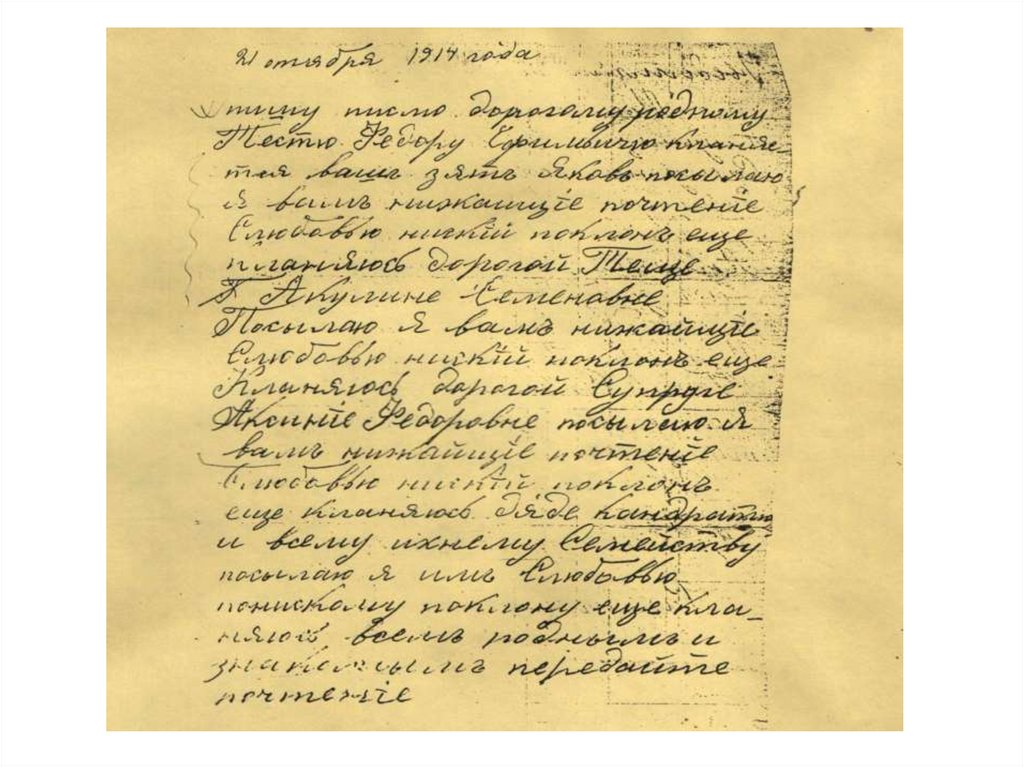 21 октября 1914 года
пишу писмо дорогому родному
Тестю Федору Ефимовичю кланяе
тся вашъ зять Яковъ посылаю
я вамъ нижаищіе почтеніе
Слюбовью нискій поклонъ еще
кланяюсь дорогой Теще
Акулине Семеновне
Посылаю я вамъ нижайщіе
Слюбовью нискій поклонъ еще
Кланяюсь дорогой Супруге
Аксиніе Федоровне посылаю я
вамъ нижайщіе почтеніе
Слюбовью нискій поклонъ
еще кланяюсь дяде кандратию
и всему ихнему Семейству
посылаю я имъ Слюбовью
понискому поклону еще кла-
няюсь всемъ роднымъ и
знакомымъ передайте
почтеніе